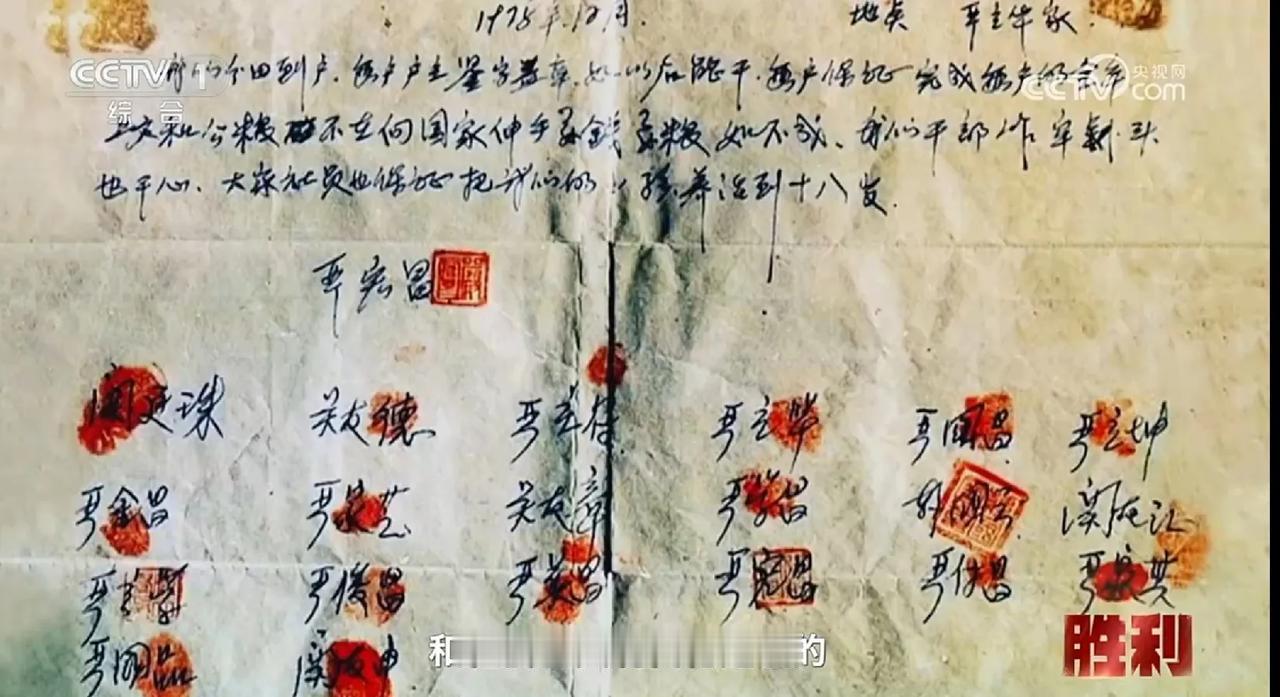 1978年12月. 地点 严立华家
我们分田到户,每户户主签字盖章,如以后能干,每户保证完成每户的全年
上交和公粮 不在向国家伸手要钱要粮 如不成,我们干部作牢刹头
也干心,大家社员也保证把我们的小孩养活到十八岁.
严宏昌
関廷珠 关友德 严立符 严立华 严国昌 严立坤
严金昌 严家芝 关友章 严学昌 韩国云 関友江
严立学 严俊昌 严美昌 严宏昌 严付昌 严家其
严国品 関友申
CCTV 1
综合
CCTV 央视网
com
和 的
胜利